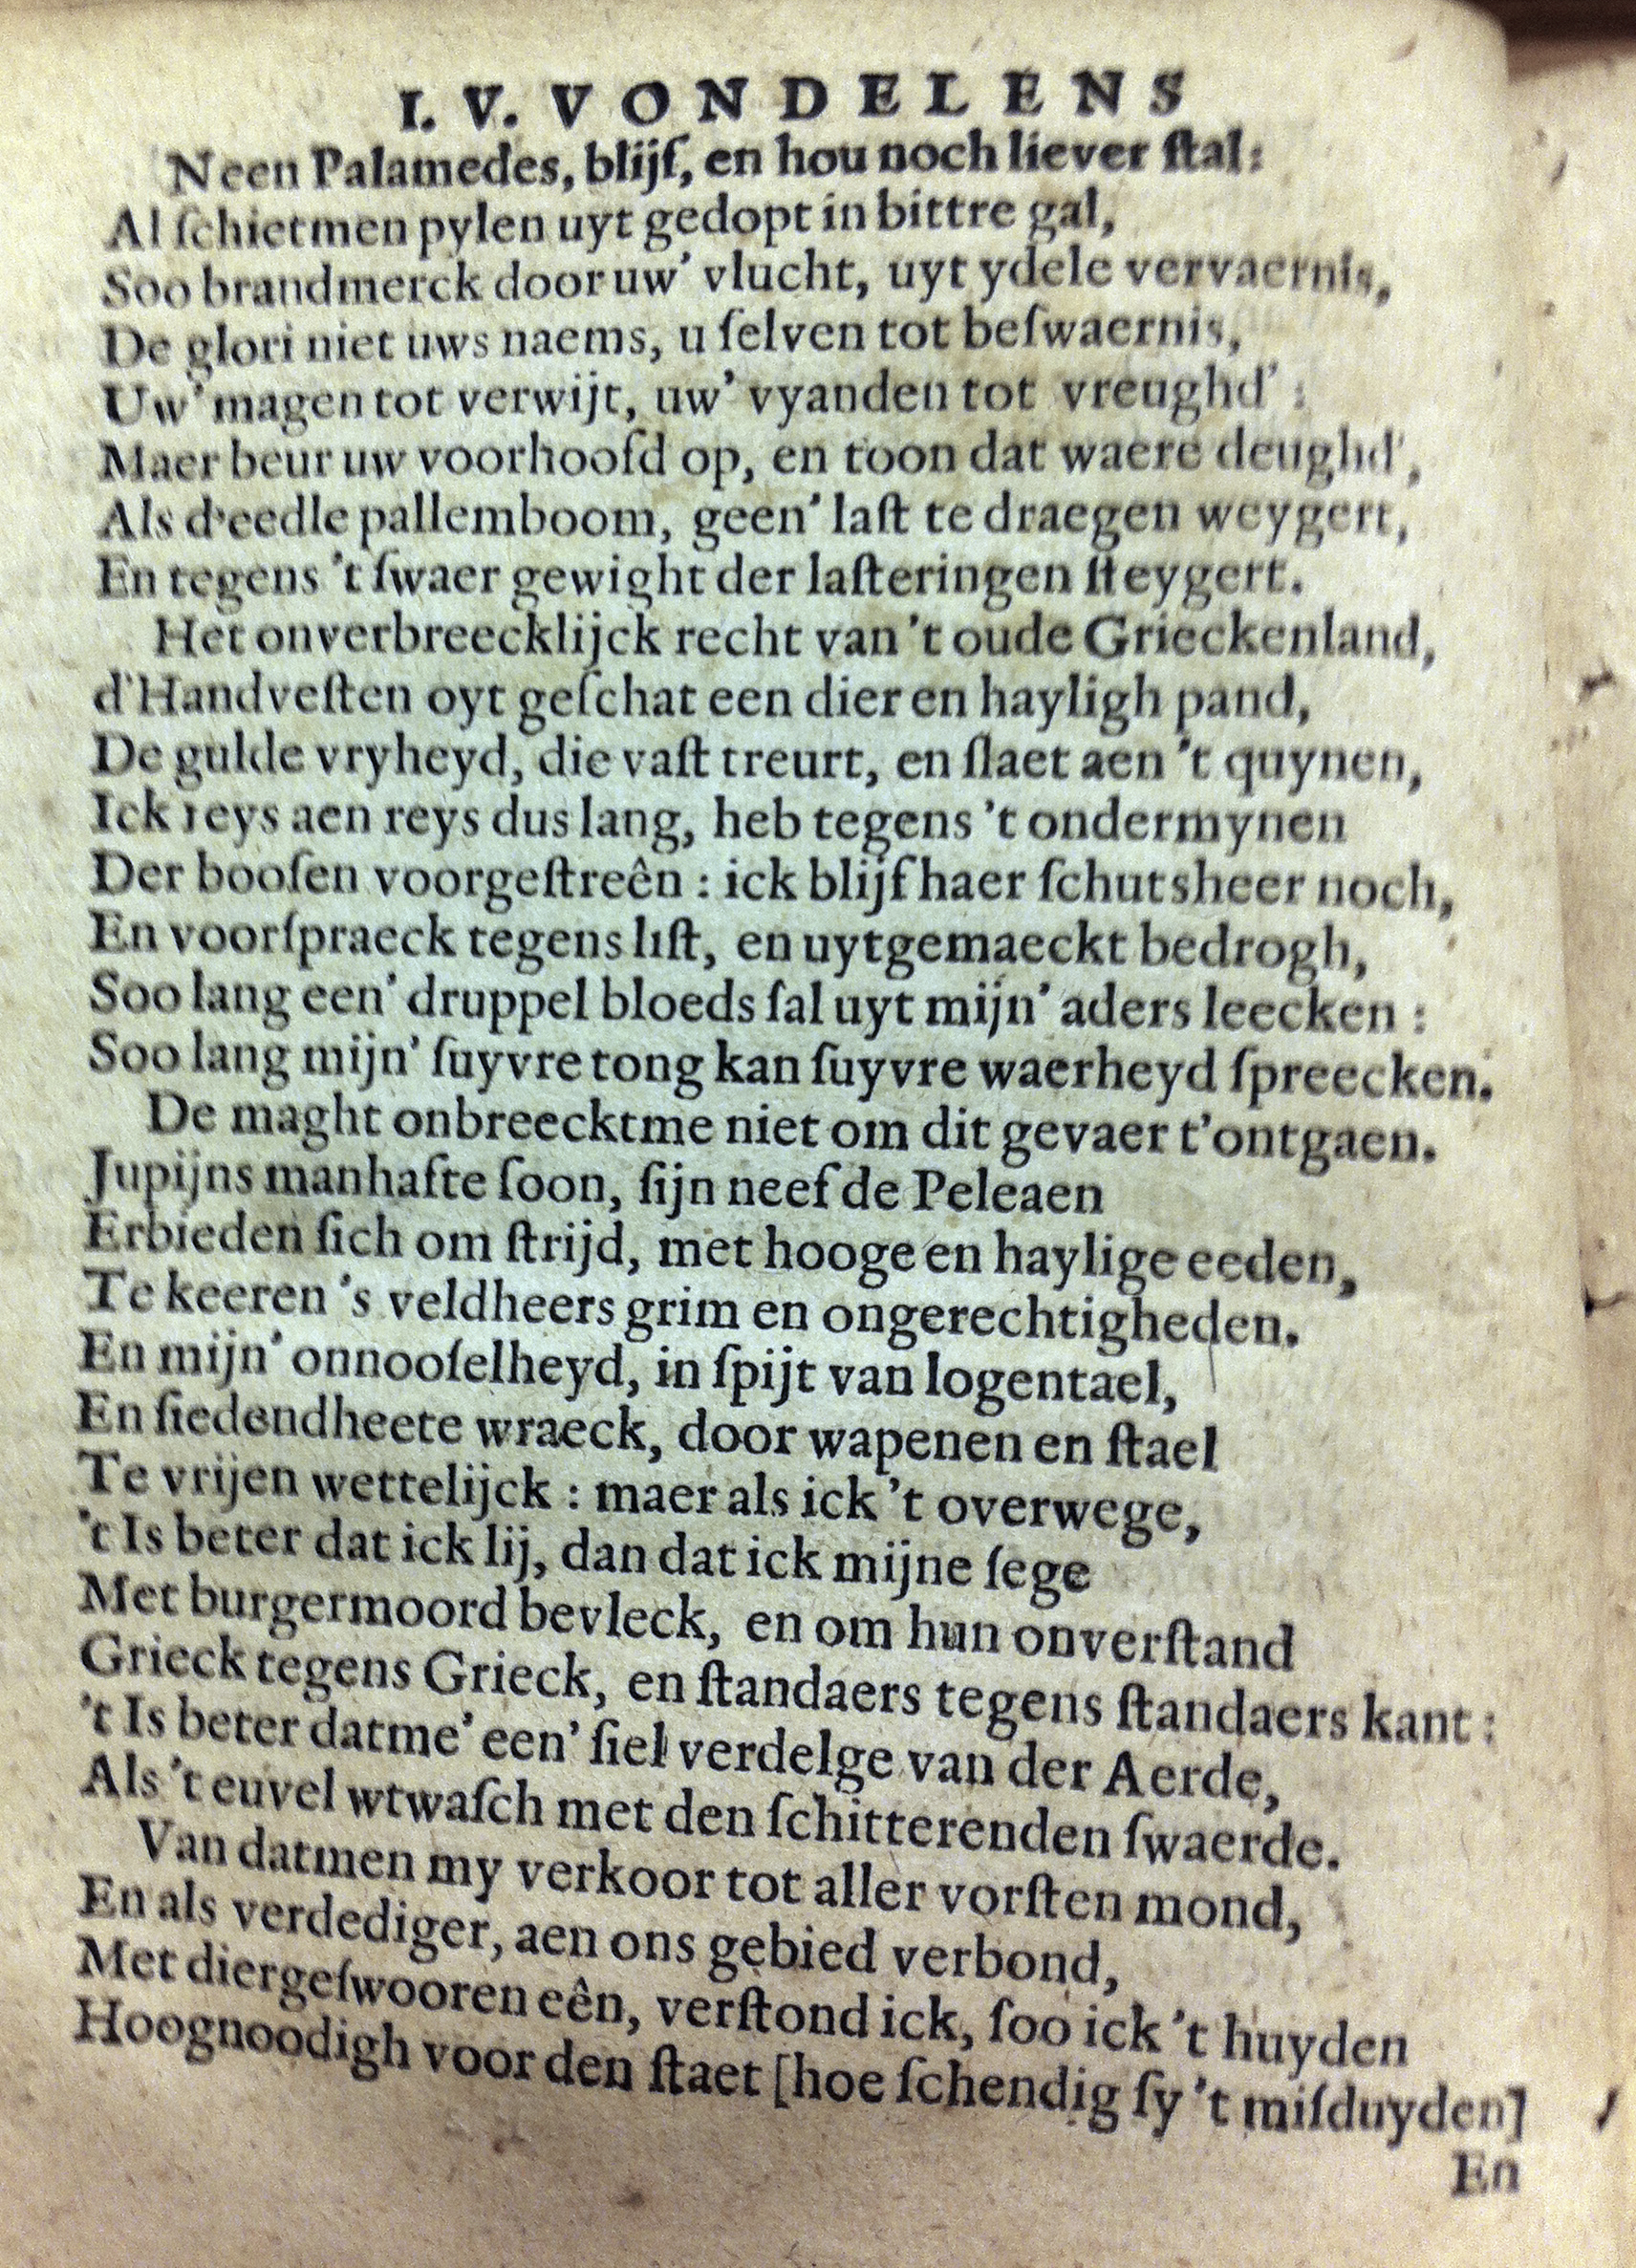 I. V. VONDELENS
Neen Palamedes, blijf, en hou noch liever ſtal:
Al ſchietmen pylen uyt gedopt in bittre gal,
Soo brandmerck door uw’ vlucht, uyt ydele vervaernis,
De glori niet uws naems, u ſelven tot beſwaernis,
Uw’ magen tot verwijt, uw’ vyanden tot vreughd’:
Maer beur uw voorhoofd op, en toon dat waere deughd’,
Als d’eedle pallemboom, geen’ laſt te draegen weygert,
En tegens ’t ſwaer gewight der laſteringen ſteygert.
Het onverbreecklijck recht van ’t oude Grieckenland,
d’Handveſten oyt geſchat een dier en hayligh pand,
De gulde vryheyd, die vaſt treurt, en ſlaet aen ’t quynen,
Ick reys aen reys dus lang, heb tegens ’t ondermynen
Der booſen voorgeſtreên: ick blijf haer ſchutsheer noch,
En voorſpraeck tegens liſt, en uytgemaeckt bedrogh,
Soo lang een’ druppel bloeds ſal uyt mijn’ aders leecken:
Soo lang mijn’ ſuyvre tong kan ſuyvre waerheyd ſpreecken.
De maght onbreecktme niet om dit gevaer t’ontgaen.
Jupijns manhafte ſoon, ſijn neef de Peleaen
Erbieden ſich om ſtrijd, met hooge en haylige eeden,
Te keeren ’s veldheers grim en ongerechtigheden.
En mijn’ onnooſelheyd, in ſpijt van logentael,
En ſiedendheete wraeck, door wapenen en ſtael
Te vrijen wettelijck: maer als ick ’t overwege,
’t Is beter dat ick lij, dan dat ick mijne ſege
Met burgermoord bevleck, en om hun onverſtand
Grieck tegens Grieck, en ſtandaers tegens ſtandaers kant:
’t Is beter datme’ een’ ſiel verdelge van der Aerde,
Als ’t euvel wtwaſch met den ſchitterenden ſwaerde.
Van datmen my verkoor tot aller vorſten mond,
En als verdediger, aen ons gebied verbond,
Met diergeſwooren eên, verſtond ick, ſoo ick ’t huyden
Hoognoodigh voor den ſtaet [hoe ſchendig ſy ’t miſduyden]
En